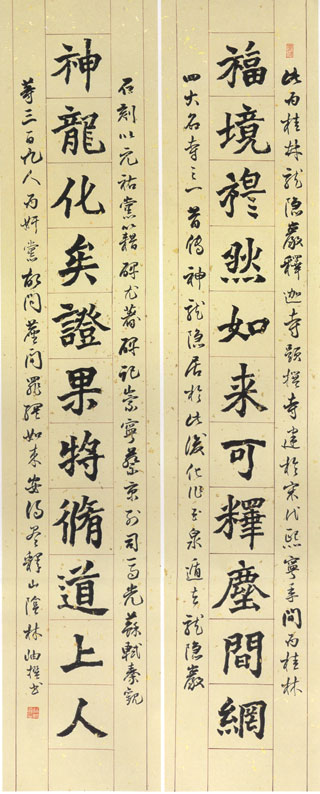 此为桂林龍隐巖釋迦寺題撰寺建於宋代熙寧年間为桂林
福境穆然如来可釋塵間網
四大石寺之一昔傳神龍隐居於此後化作玉泉遁去龍隐巖
石刻以元祐黨籍碑尤著碑記崇寧蔡京列司马光蘇軾秦觀
神龍化矣證果特脩道上人
等三百九人为奸黨故问塵间羅網如来安得尽釋山陰林岫撰书